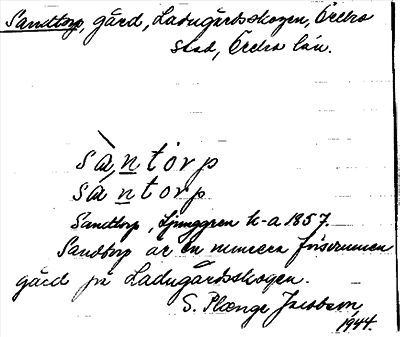 Sandtorp, gård, Ladugårdsskogen, Örebro
stad, Örebro län.
sàntórp
sántorp
Sandtorp, Ljunggren k-a 1857.
Sandtorp är en numera försvunnen
gård på Ladugårdsskogen.
S. Plænge Jacobson,
1944.